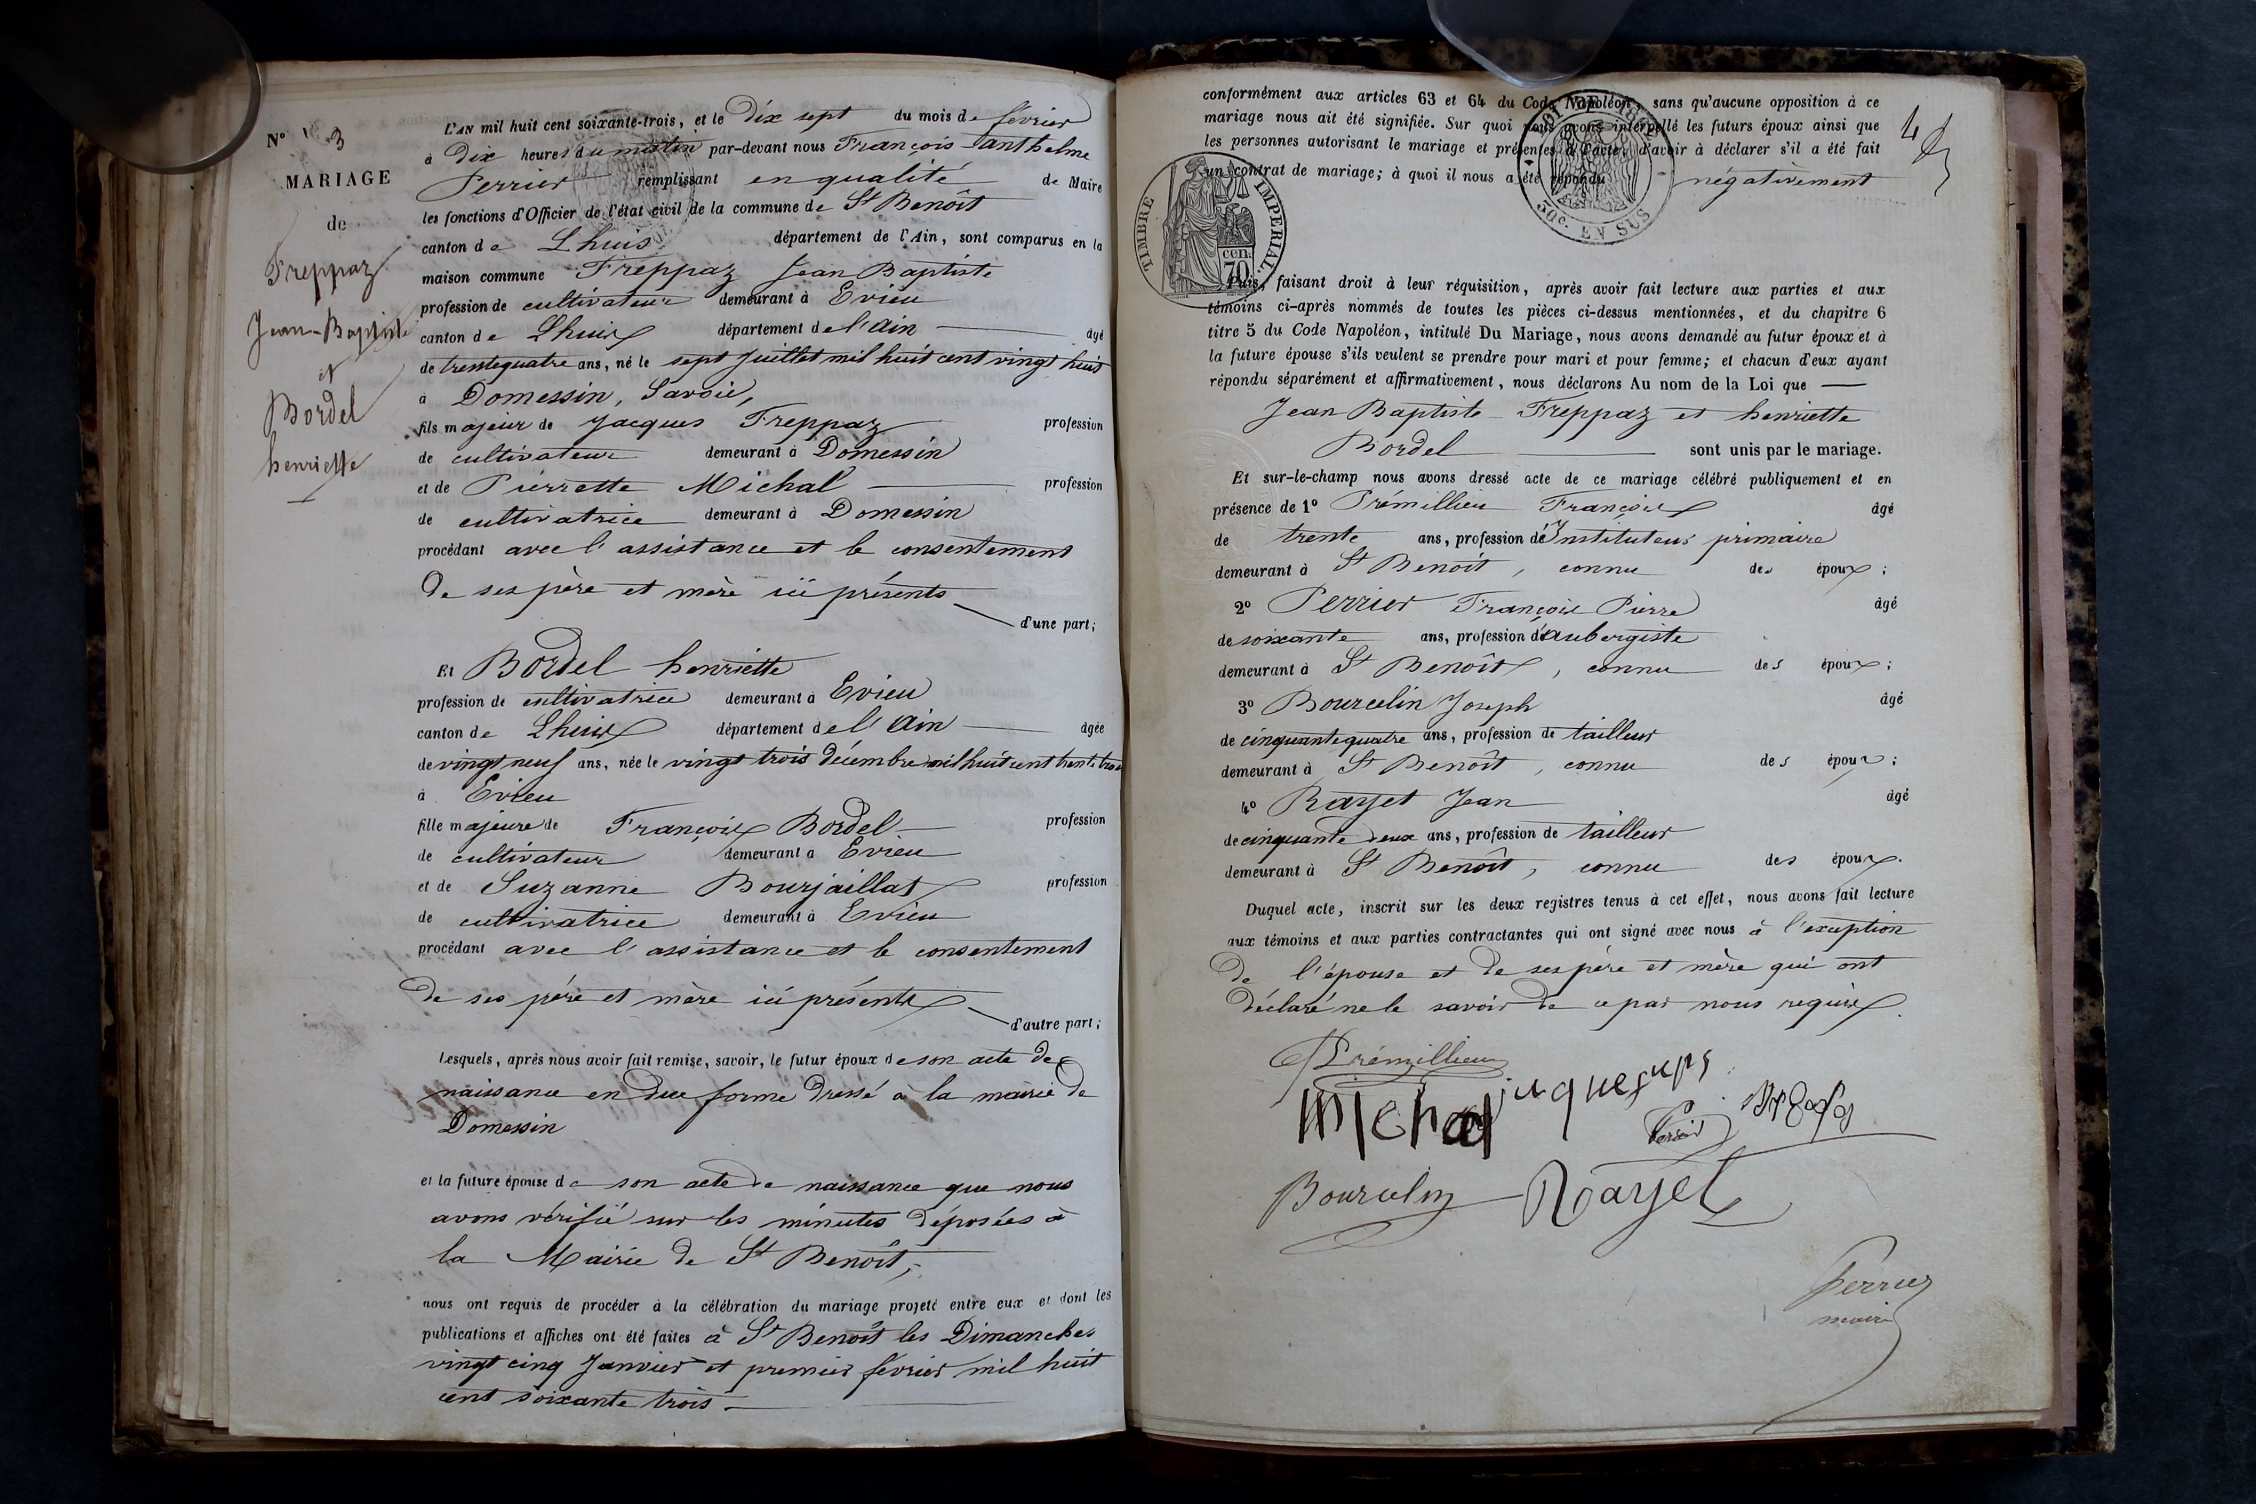 N° 3
MARIAGE
de
Freppaz
Jean-Baptiste
et
Bordel
henriette
L'AN mil huit cent soixante-trois, et le dix sept du mois de février
à dix heures du matin par-devant nous François Anthelme
Perrier remplissant en qualité de Maire
les fonctions d'Officier de l'état civil de la commune de St Benoît
canton de Lhuis département de l'Ain, sont comparus en la
maison commune Freppaz Jean Baptiste
profession de cultivateur demeurant à Evieu
canton de Lhuis département de l'Ain âgé
de trente quatre ans, né le sept Juillet mil huit cent vingt huit
à Domessin, Savoie,
fils majeur de Jacques Freppaz profession
de cultivateur demeurant à Domessin
et de Pierrette Michal profession
de cultivatrice demeurant à Domessin
procédant avec l'assistance et le consentement
de ses père et mère ici présents
d'une part;
Et Bordel henriette
profession de cultivatrice demeurant à Evieu
canton de Lhuis département de l'Ain âgée
de vingt neuf ans, née le vingt trois décembre mil huit cent trente trois
à Evieu
fille majeure de François Bordel profession
de cultivateur demeurant à Evieu
et de Suzanne Bourjaillat profession
de cultivatrice demeurant à Evieu
procédant avec l'assistance et le consentement
de ses père et mère ici présents
d'autre part;
Lesquels, après nous avoir fait remise, savoir, le futur époux de son acte de
naissance en due forme dressé à la mairie de
Domessin
et la future épouse de son acte de naissance que nous
avons vérifié sur les minutes déposées à
la Mairie de St Benoît,
nous ont requis de procéder à la célébration du mariage projeté entre eux et dont les
publications et affiches ont été faites à St Benoît les Dimanches
vingt cinq Janvier et premier février mil huit
cent soixante trois
conformément aux articles 63 et 64 du Code Napoléon, sans qu'aucune opposition à ce
mariage nous ait été signifiée. Sur quoi nous avons interpellé les futurs époux ainsi que
les personnes autorisant le mariage et présentes à l'acte, d'avoir à déclarer s'il a été fait
un contrat de mariage; à quoi il nous a été répondu négativement
4
TIMBRE IMPERIAL
70 cen.
50c. EN SUS
Puis, faisant droit à leur réquisition, après avoir fait lecture aux parties et aux
témoins ci-après nommés de toutes les pièces ci-dessus mentionnées, et du chapitre 6
titre 5 du Code Napoléon, intitulé Du Mariage, nous avons demandé au futur époux et à
la future épouse s'ils veulent se prendre pour mari et pour femme; et chacun d'eux ayant
répondu séparément et affirmativement, nous déclarons Au nom de la Loi que
Jean Baptiste Freppaz et henriette
Bordel sont unis par le mariage.
Et sur-le-champ nous avons dressé acte de ce mariage célébré publiquement et en
présence de 1° Prémillieu François âgé
de trente ans, profession d'Instituteur primaire
demeurant à St Benoît, connu des époux;
2° Perrier François Pierre âgé
de soixante ans, profession d'aubergiste
demeurant à St Benoît, connu des époux;
3° Bourcelin Joseph âgé
de cinquante quatre ans, profession de tailleur
demeurant à St Benoît, connu des époux;
4° Rayet Jean âgé
de cinquante deux ans, profession de tailleur
demeurant à St Benoît, connu des époux.
Duquel acte, inscrit sur les deux registres tenus à cet effet, nous avons fait lecture
aux témoins et aux parties contractantes qui ont signé avec nous à l'exeption
de l'épouse et de ses père et mère qui ont
déclaré ne le savoir de ce par nous requis.
Prémillieu
Michal
Perrier
Bourcelin Rayet
Perrier
maire